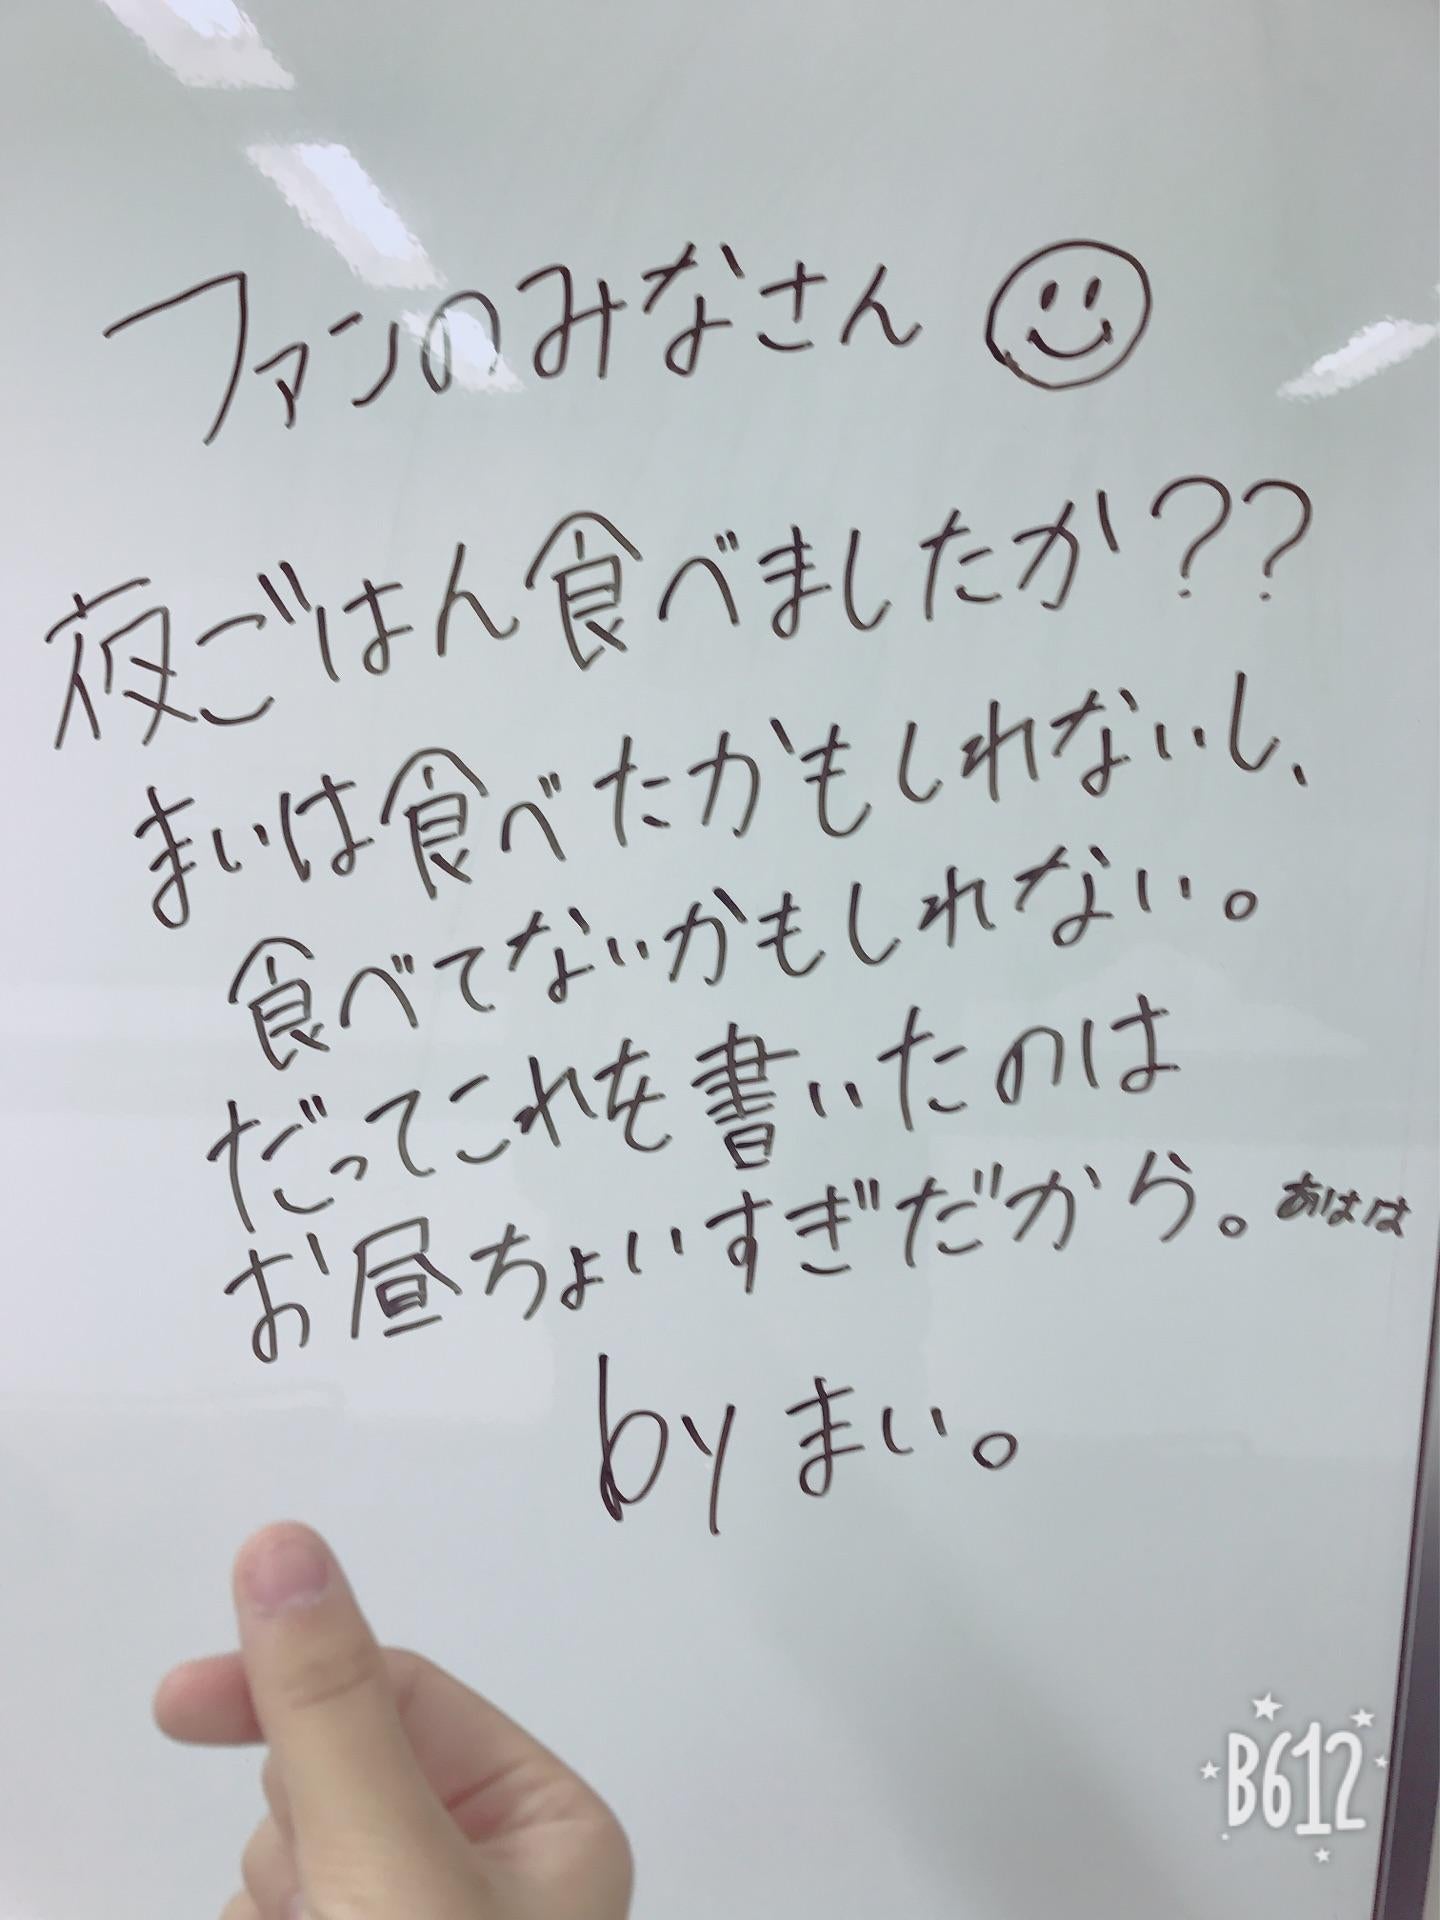 ファンのみなさん
夜ごはん食べましたか??
まいは食べたかもしれないし、
食べてないかもしれない。
だってこれを書いたのは
お昼ちょいすぎだから。あはは
byまい。
B612